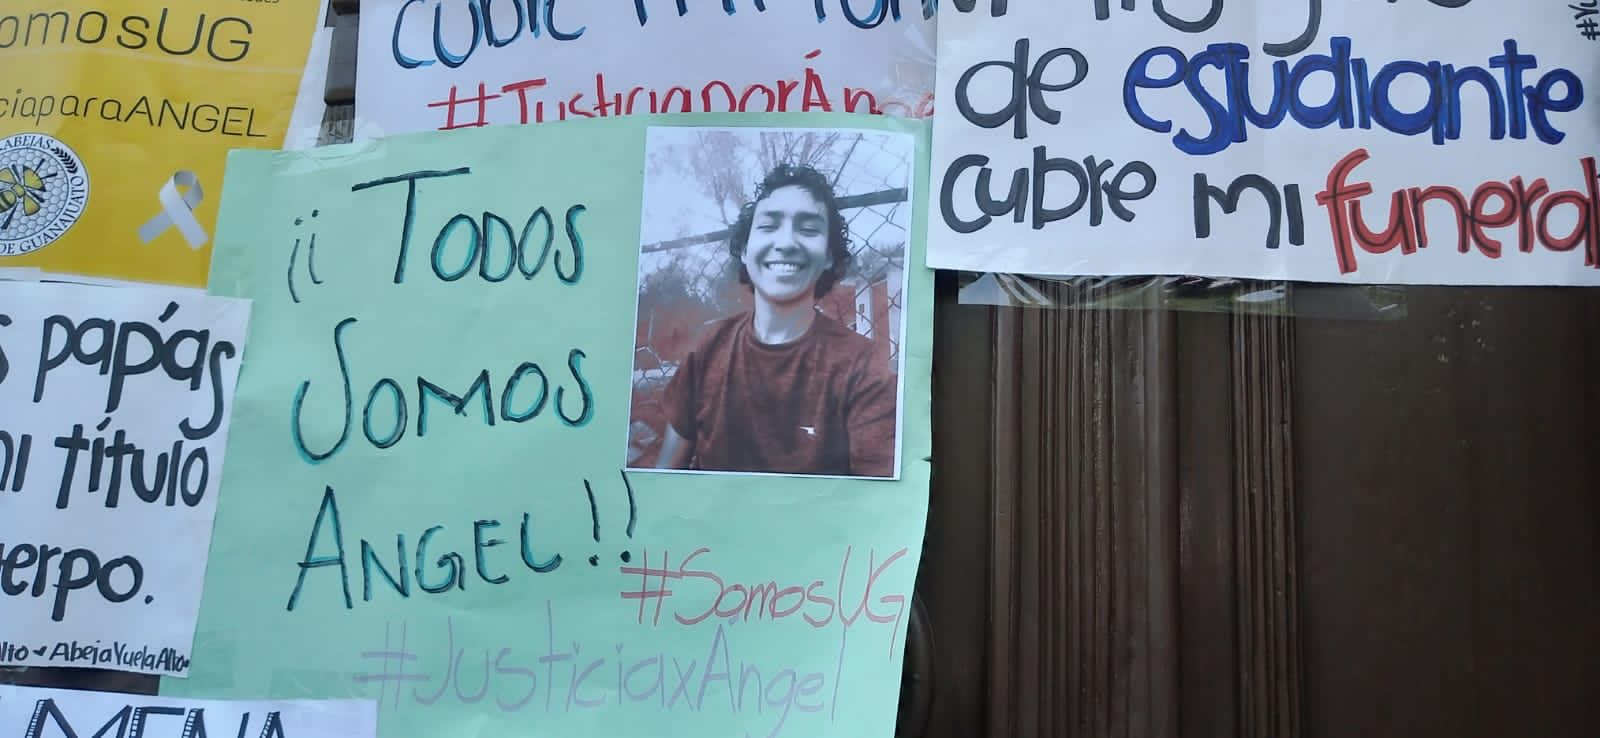 omosUG
ciaparaANGEL
ABEJAS
DE GUANAJUATO
#JusticiaporÁnge
de estudiante
cubre mi funeral
¡¡ TODOS
SOMOS
ANGEL!!
#SomosUG
#JusticiaxAngel
s papás
mi título
erpo.
Alto - AbejaVuelaAlto